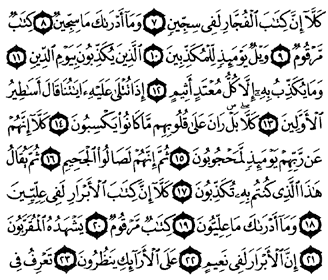 كَلَّآ إِنَّ كِتَٰبَ ٱلْفُجَّارِ لَفِى سِجِّينٍ ٧ وَمَآ أَدْرَىٰكَ مَا سِجِّينٌ ٨ كِتَٰبٌ
مَّرْقُومٌ ٩ وَيْلٌ يَوْمَئِذٍ لِّلْمُكَذِّبِينَ ١٠ ٱلَّذِينَ يُكَذِّبُونَ بِيَوْمِ ٱلدِّينِ ١١
وَمَا يُكَذِّبُ بِهِۦٓ إِلَّا كُلُّ مُعْتَدٍ أَثِيمٍ ١٢ إِذَا تُتْلَىٰ عَلَيْهِ ءَايَٰتُنَا قَالَ أَسَٰطِيرُ
ٱلْأَوَّلِينَ ١٣ كَلَّا ۖ بَلْ ۜ رَانَ عَلَىٰ قُلُوبِهِم مَّا كَانُوا۟ يَكْسِبُونَ ١٤ كَلَّآ إِنَّهُمْ
عَن رَّبِّهِمْ يَوْمَئِذٍ لَّمَحْجُوبُونَ ١٥ ثُمَّ إِنَّهُمْ لَصَالُوا۟ ٱلْجَحِيمِ ١٦ ثُمَّ يُقَالُ
هَٰذَا ٱلَّذِى كُنتُم بِهِۦ تُكَذِّبُونَ ١٧ كَلَّآ إِنَّ كِتَٰبَ ٱلْأَبْرَارِ لَفِى عِلِّيِّينَ
١٨ وَمَآ أَدْرَىٰكَ مَا عِلِّيُّونَ ١٩ كِتَٰبٌ مَّرْقُومٌ ٢٠ يَشْهَدُهُ ٱلْمُقَرَّبُونَ
٢١ إِنَّ ٱلْأَبْرَارَ لَفِى نَعِيمٍ ٢٢ عَلَى ٱلْأَرَآئِكِ يَنظُرُونَ ٢٣ تَعْرِفُ فِى